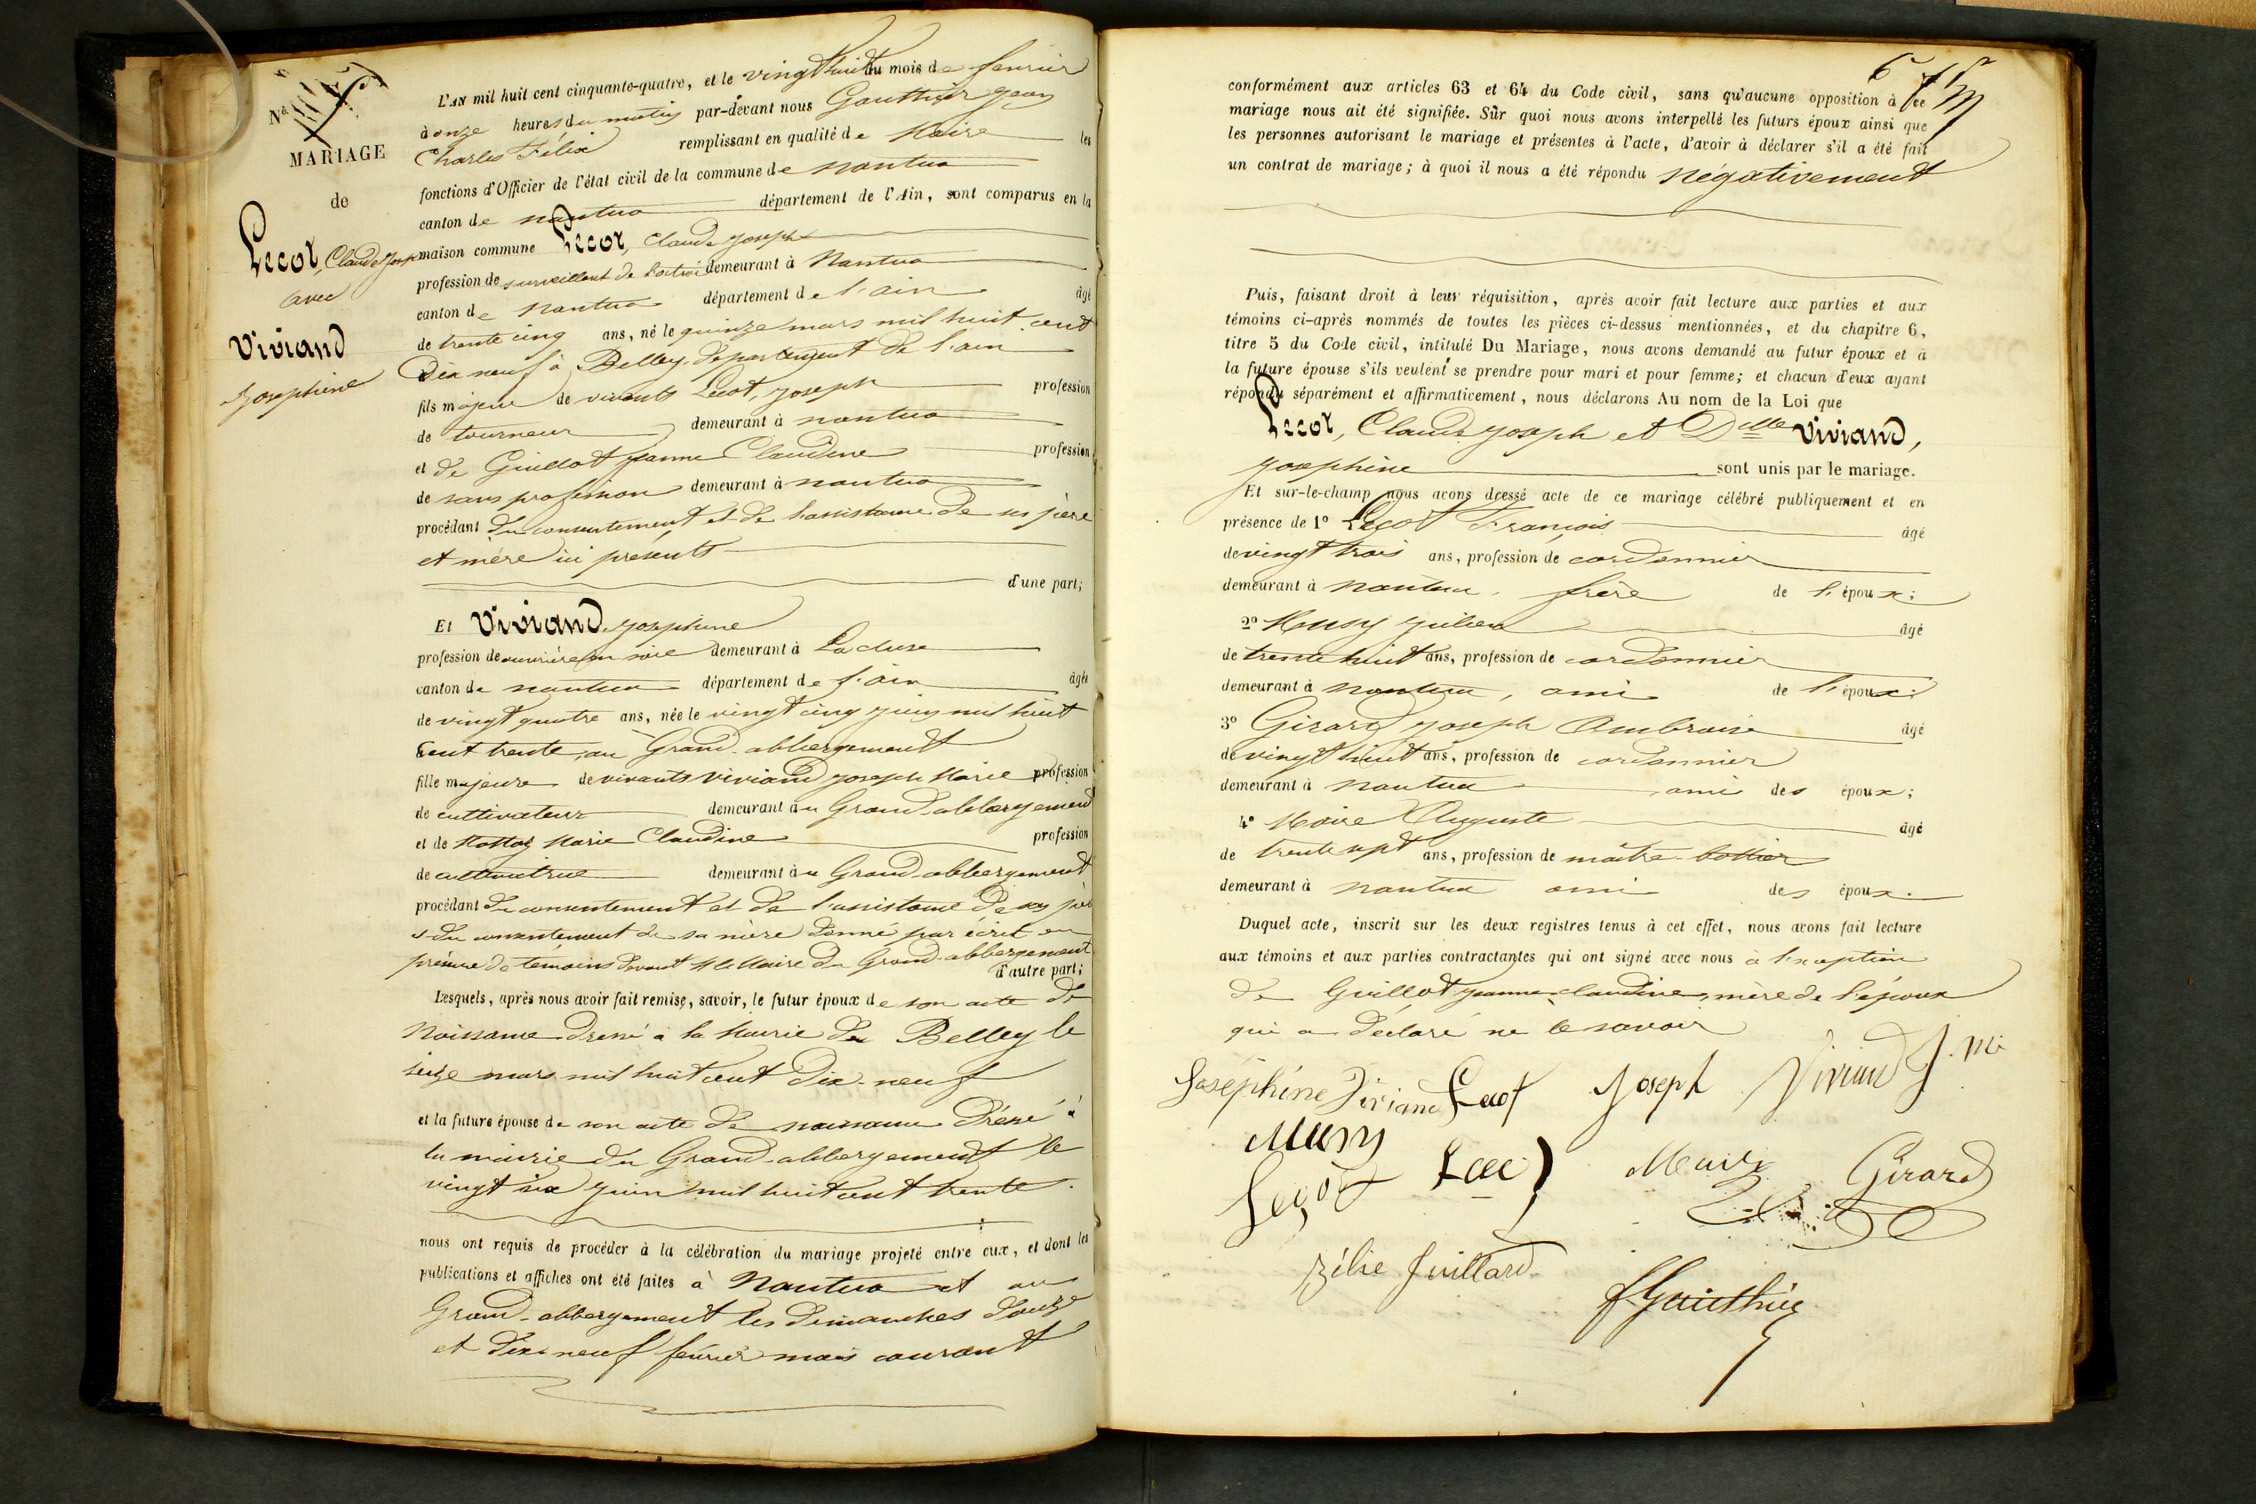 Nº
MARIAGE
de
Lecot, Claude Joseph
avec
Viviand
Josephine
L'AN mil huit cent cinquante-quatre, et le vingt huit du mois de fevrier
à onze heures du matin par-devant nous Gauthier Jean
Charles Félix remplissant en qualité de Maire les
fonctions d'Officier de l'état civil de la commune de Nantua
canton de Nantua département de l'Ain, sont comparus en la
maison commune Lecot, Claude Joseph
profession de surveillant de demeurant à Nantua
canton de Nantua département de l'ain âgé
de trente cinq ans, né le quinze mars mil huit cent
Dix neuf à Belley, département de l'ain
fils majeur de vivants Lecot, Joseph profession
de tourneur demeurant à nantua
et de Guillot Jeanne Claudine profession
de sans profession demeurant à nantua
procédant du consentement et de l'assistance de ses père
et mère ici présents
d'une part;
Et Viviand, Josephine
profession de ouvrière en soie demeurant à La cluse
canton de nantua département de l'ain âgée
de vingt quatre ans, née le vingt cinq juin mil huit
cent trente, au Grand-abbergement
fille majeure de vivants Viviand Joseph Marie profession
de cultivateur demeurant au Grand abbergement
et de Marie Claudine profession
de cultivatrice demeurant au Grand-abbergement
procédant du consentement et de l'assistance de son père
et du consentement de sa mère donné par écrit en
présence de temoins devant M le Maire du Grand-abbergement
d'autre part;
Lesquels, après nous avoir fait remise, savoir, le futur époux de son acte de
Naissance dressé à la Mairie de Belley le
seize mars mil huit cent Dix-neuf
et la future épouse de son acte de naissance dréssé à
la mairie du Grand-abbergement le
vingt six juin mil huit cent trente.
nous ont requis de procéder à la célébration du mariage projeté entre eux, et dont les
publications et affiches ont été faites à Nantua et au
Grand-abbergement les dimanches douze
et dix-neuf février mois courant
6
conformément aux articles 63 et 64 du Code civil, sans qu'aucune opposition à ce
mariage nous ait été signifiée. Sur quoi nous avons interpellé les futurs époux ainsi que
les personnes autorisant le mariage et présentes à l'acte, d'avoir à déclarer s'il a été fait
un contrat de mariage; à quoi il nous a été répondu négativement
Puis, faisant droit à leur réquisition, après avoir fait lecture aux parties et aux
témoins ci-après nommés de toutes les pièces ci-dessus mentionnées, et du chapitre 6,
titre 5 du Code civil, intitulé Du Mariage, nous avons demandé au futur époux et à
la future épouse s'ils veulent se prendre pour mari et pour femme; et chacun d'eux ayant
répondu séparément et affirmaticement, nous déclarons Au nom de la Loi que
Lecot, Claude Joseph et Delle Viviand,
Josephine sont unis par le mariage.
Et sur-le-champ nous avons dressé acte de ce mariage célébré publiquement et en
présence de 1º Leçot François âgé
de vingt trois ans, profession de cordonnier
demeurant à nantua, frère de l'époux;
2º Musy Julien âgé
de trente huit ans, profession de cordonnier
demeurant à nantua, ami de l'époux;
3º Girard Joseph Ambroise âgé
de vingt huit ans, profession de cordonnier
demeurant à nantua ami des époux;
4º Auguste âgé
de trente sept ans, profession de maître-bottier
demeurant à nantua ami des époux.
Duquel acte, inscrit sur les deux registres tenus à cet effet, nous avons fait lecture
aux témoins et aux parties contractantes qui ont signé avec nous à l'exception
de Guillot Jeanne claudine, mère de l'époux
qui a déclaré ne le savoir
Joséphine Viviand Lecot Joseph Viviand J. M.
Musy
Leçot Girard
Zélie Juillard
f Gauthier